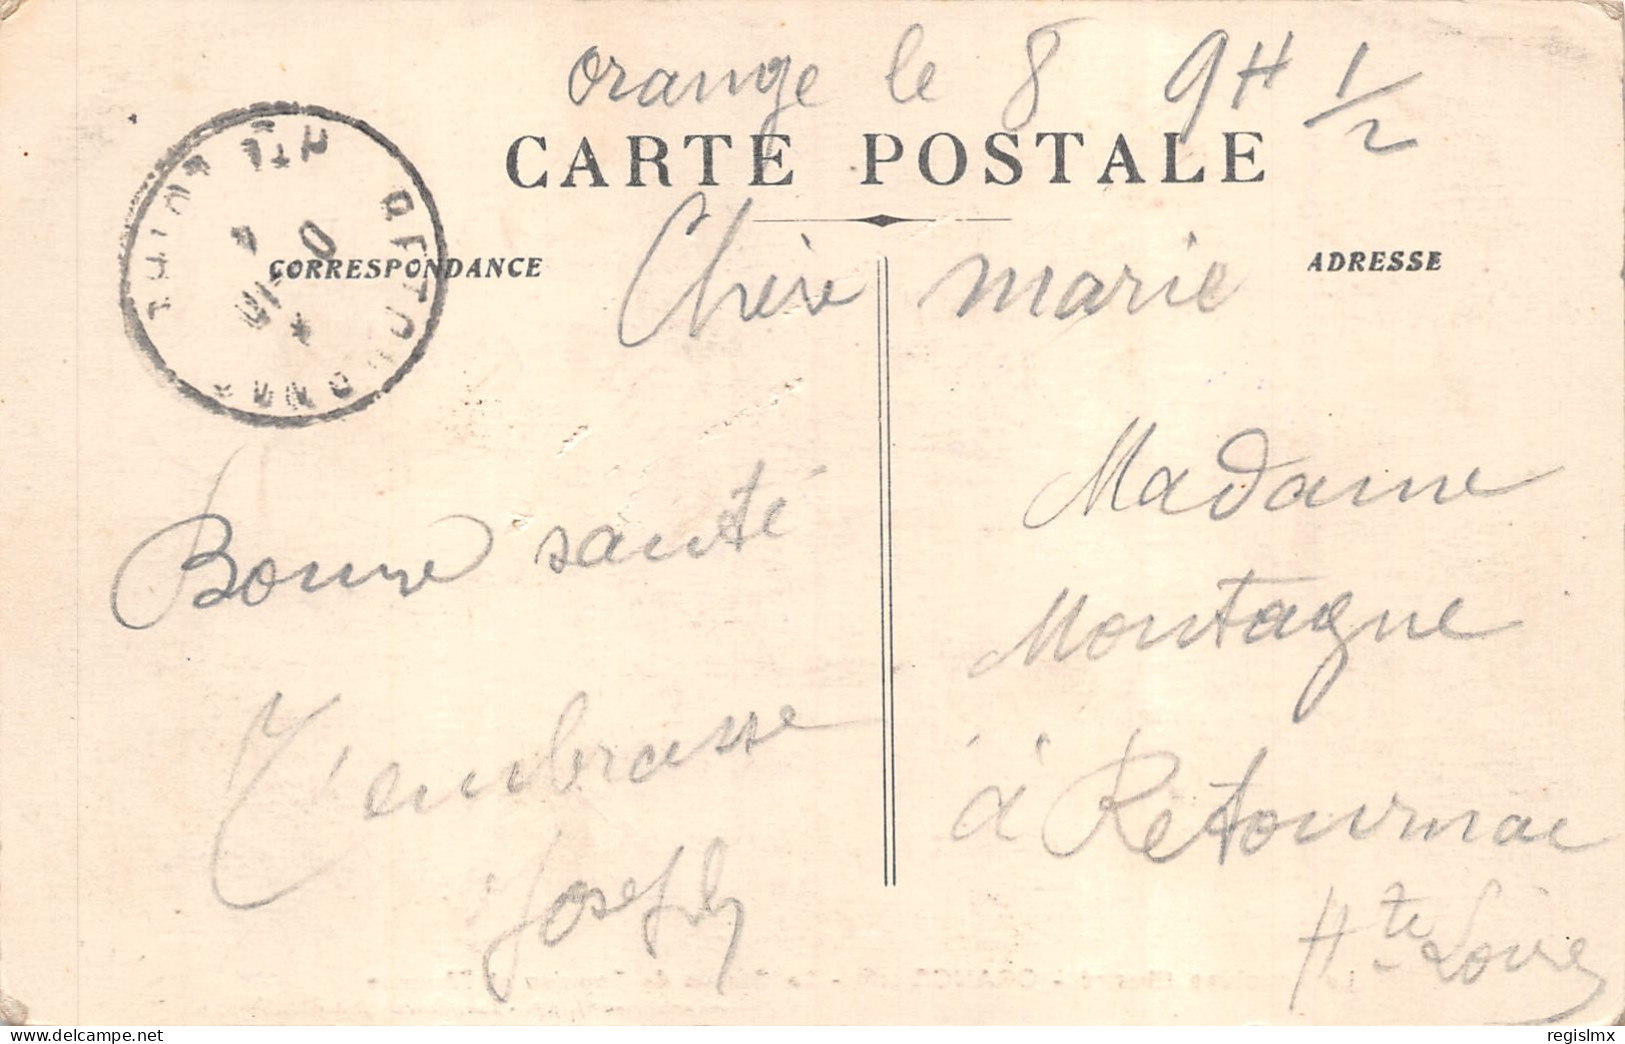 orange le 8 9H 1/2
CARTE POSTALE
CORRESPONDANCE
ADRESSE
Chère marie
Bonne santé
T'embrasse
Joseph
Madame
Montagne
à Retournac
Hte Loire
RETOURNAC
HTE LOIRE
regislmx